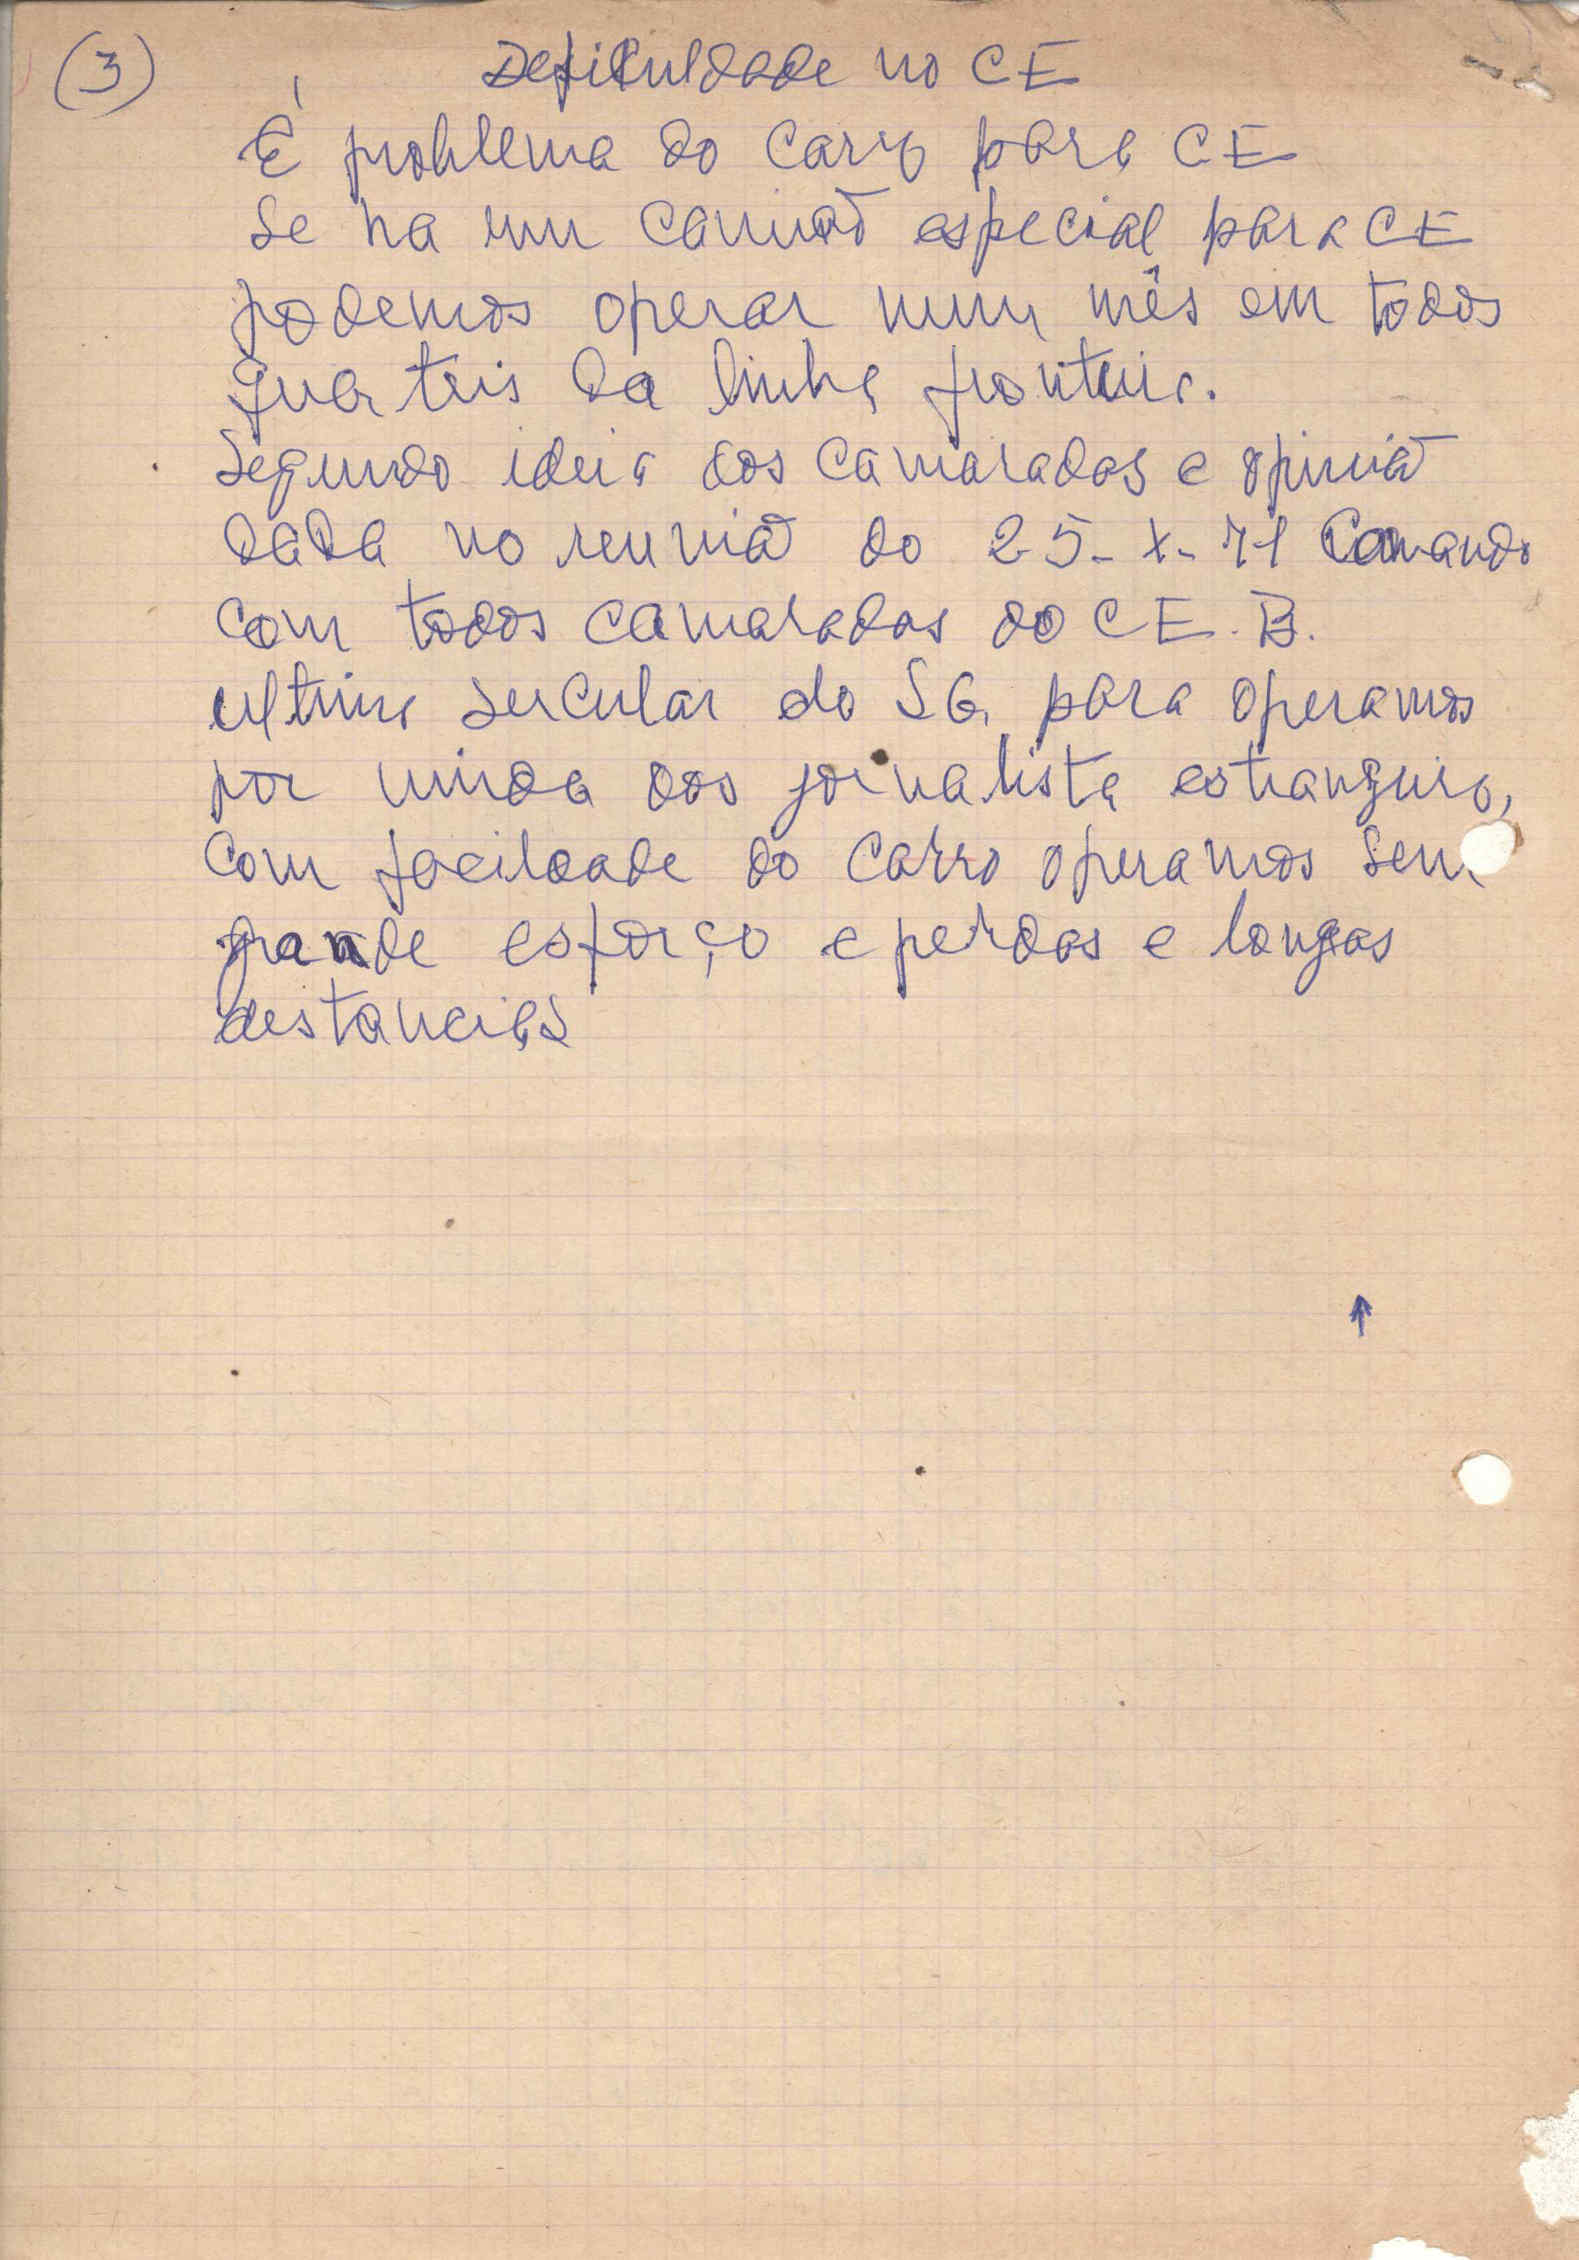 (3) Deficuldade no CE
É problema do carro para CE
Se ha um camião especial para CE
podemos operar num mês em todos
quarteis da linha fronteira.
Segundo ideia dos camaradas e opinião
dada no reunião do 25-X-71 Comando
com todos camaradas do CE. B.
ultima sercular do SG, para operamos
por vinda dos jornalista estrangeiro,
com facildade do carro operamos sem
grande esforço e perdas e longas
destancias